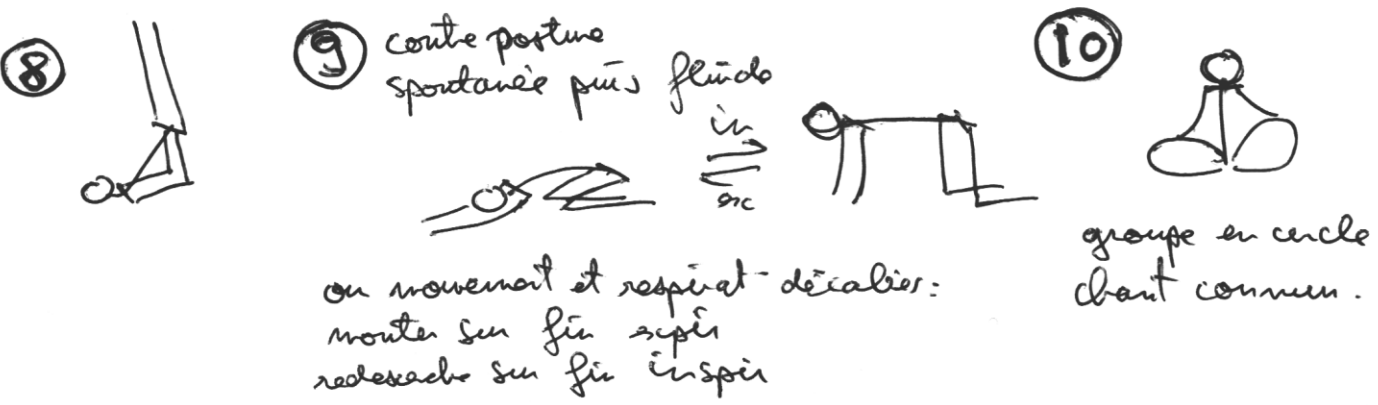 8
9 contre posture
spontanée puis fluide
in
ex
ou mouvement et respirat° décalées :
monter sur fin expir
redescendre sur fin inspir
10
groupe en cercle
chant commun.